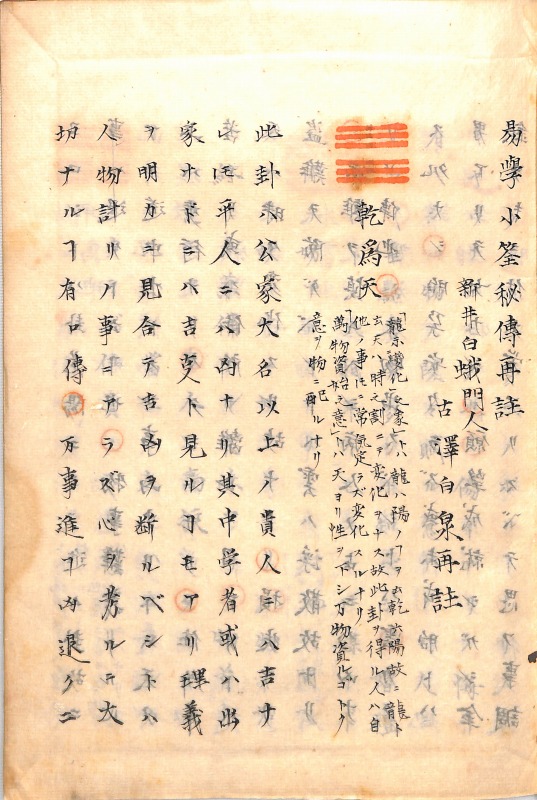 易學小筌秘傳再註
新井白蛾門人
古澤白泉再註
乾爲天
「龍示變化之象」トハ龍ハ陽ノヿヲ云乾ハ陽故ニ龍ト
云天ハ時之割ニテ変化ヲナス故此卦ヲ得ル人ハ自
他ノ事圧ニ常氣定ラズ変化スルナリ
「萬物資始之意」ハ天ヨリ性ヲ下シ万物資ルゴトク
意ヲ物ニ配ルナリ
此卦ハ公家大名以上ノ貴人ニハ吉ナ
レ圧平人ニハ凶ナリ其中学者或ハ出
家ナドニハ吉爻ト見ルヿモアリ理義
ヲ明カニ見合テ吉凶ヲ断ルベシトハ
人物計リノ事ニアラズ心ヲ労ルヿ大
切ナルヿ有口傳万事進ヿ凶退クニ